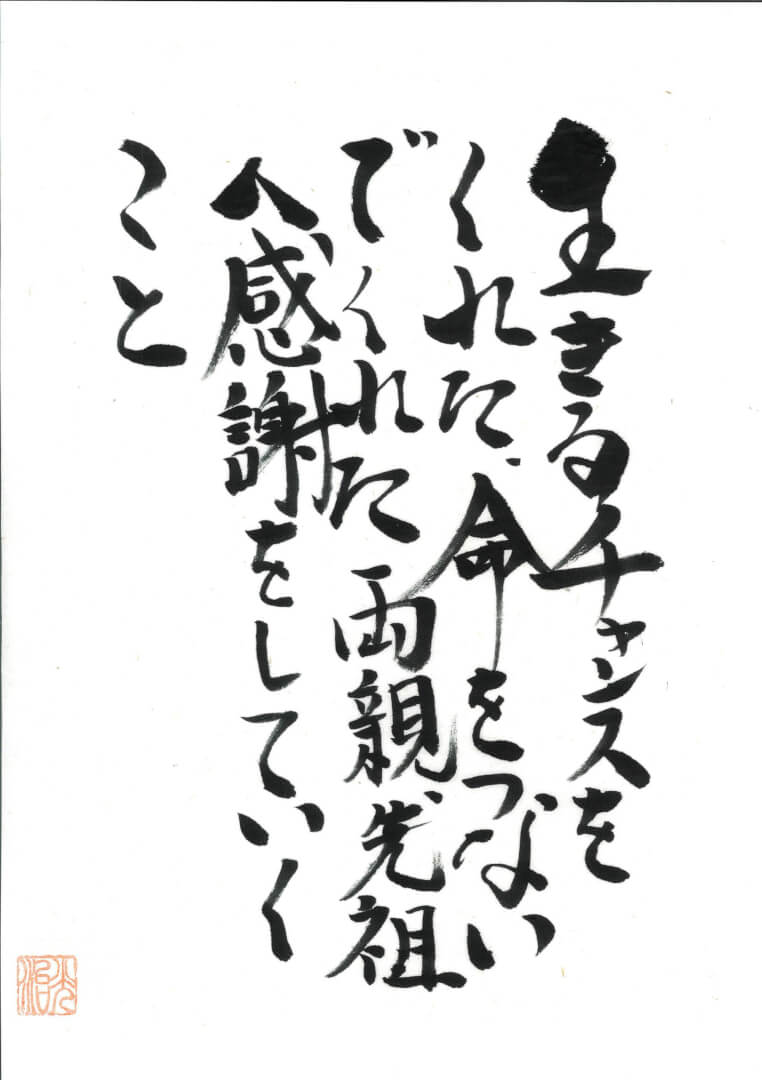 生きるチャンスを
くれた、命をつない
でくれた両親、先祖
へ、感謝をしていく
こと